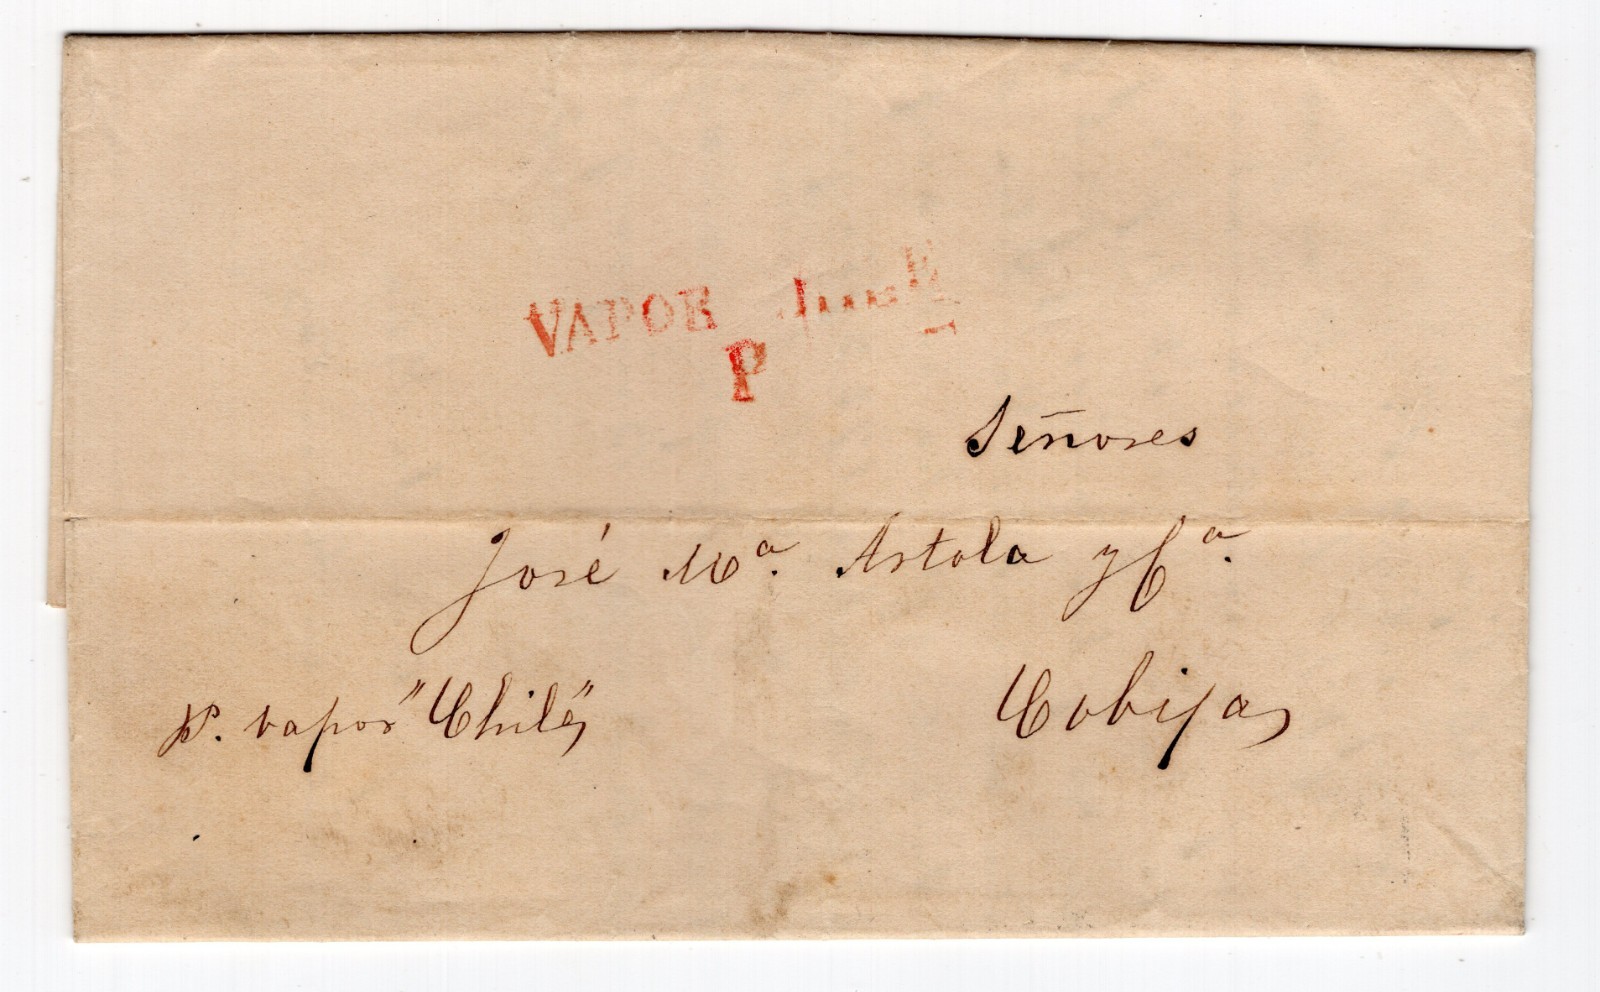 VAPOR
P
Señores
José Mª. Artola y Cª.
Cobija
p. vapor "Chile"